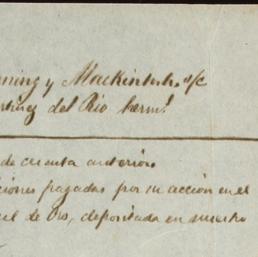 ning y Mackintosh s/c
rtinez del Rio herm.s
de cuenta anterior
ciones pagadas por su acción en el
el de Oro, depositada en nuestro